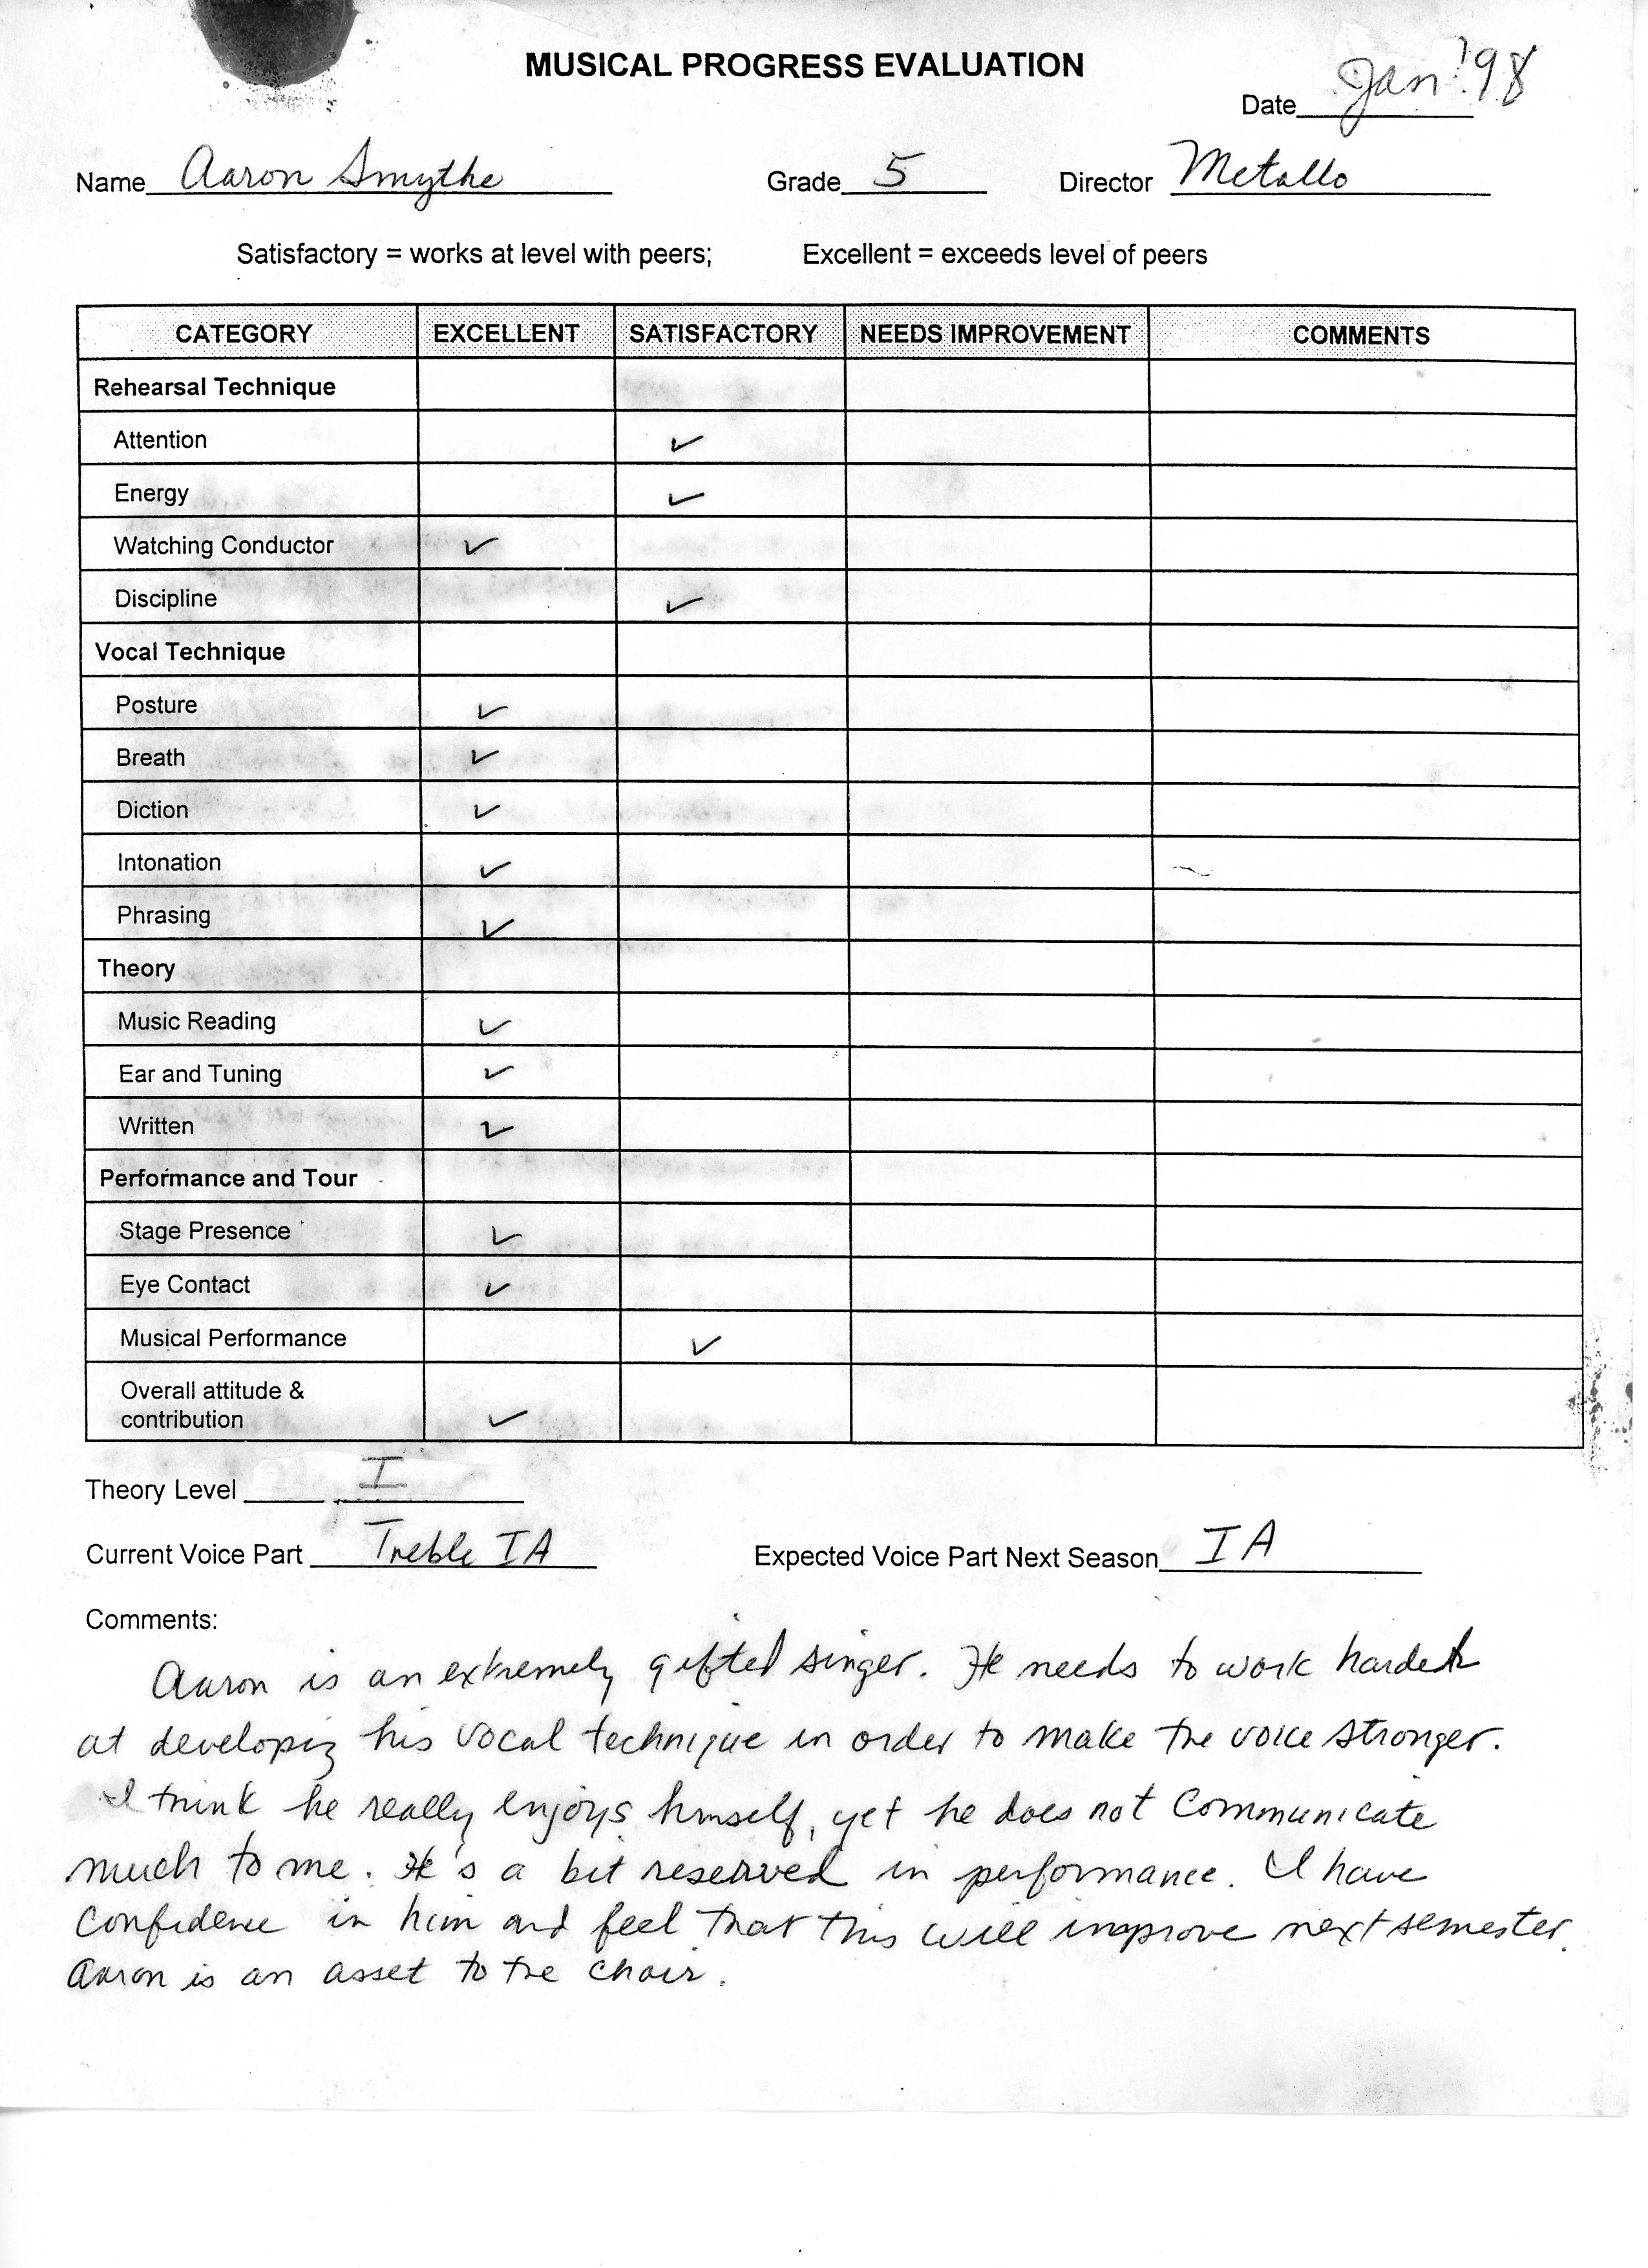 MUSICAL PROGRESS EVALUATION
Date Jan '98
Name Aaron Smythe Grade 5 Director Metallo
Satisfactory = works at level with peers; Excellent = exceeds level of peers
CATEGORY EXCELLENT SATISFACTORY NEEDS IMPROVEMENT COMMENTS
Rehearsal Technique
Attention ✓
Energy ✓
Watching Conductor ✓
Discipline ✓
Vocal Technique
Posture ✓
Breath ✓
Diction ✓
Intonation ✓
Phrasing ✓
Theory
Music Reading ✓
Ear and Tuning ✓
Written ✓
Performance and Tour
Stage Presence ✓
Eye Contact ✓
Musical Performance ✓
Overall attitude &
contribution ✓
Theory Level I
Current Voice Part Treble IA Expected Voice Part Next Season IA
Comments:
Aaron is an extremely gifted singer. He needs to work harder
at developing his vocal technique in order to make the voice stronger.
I think he really enjoys himself, yet he does not communicate
much to me. He's a bit reserved in performance. I have
confidence in him and feel that this will improve next semester.
Aaron is an asset to the choir.